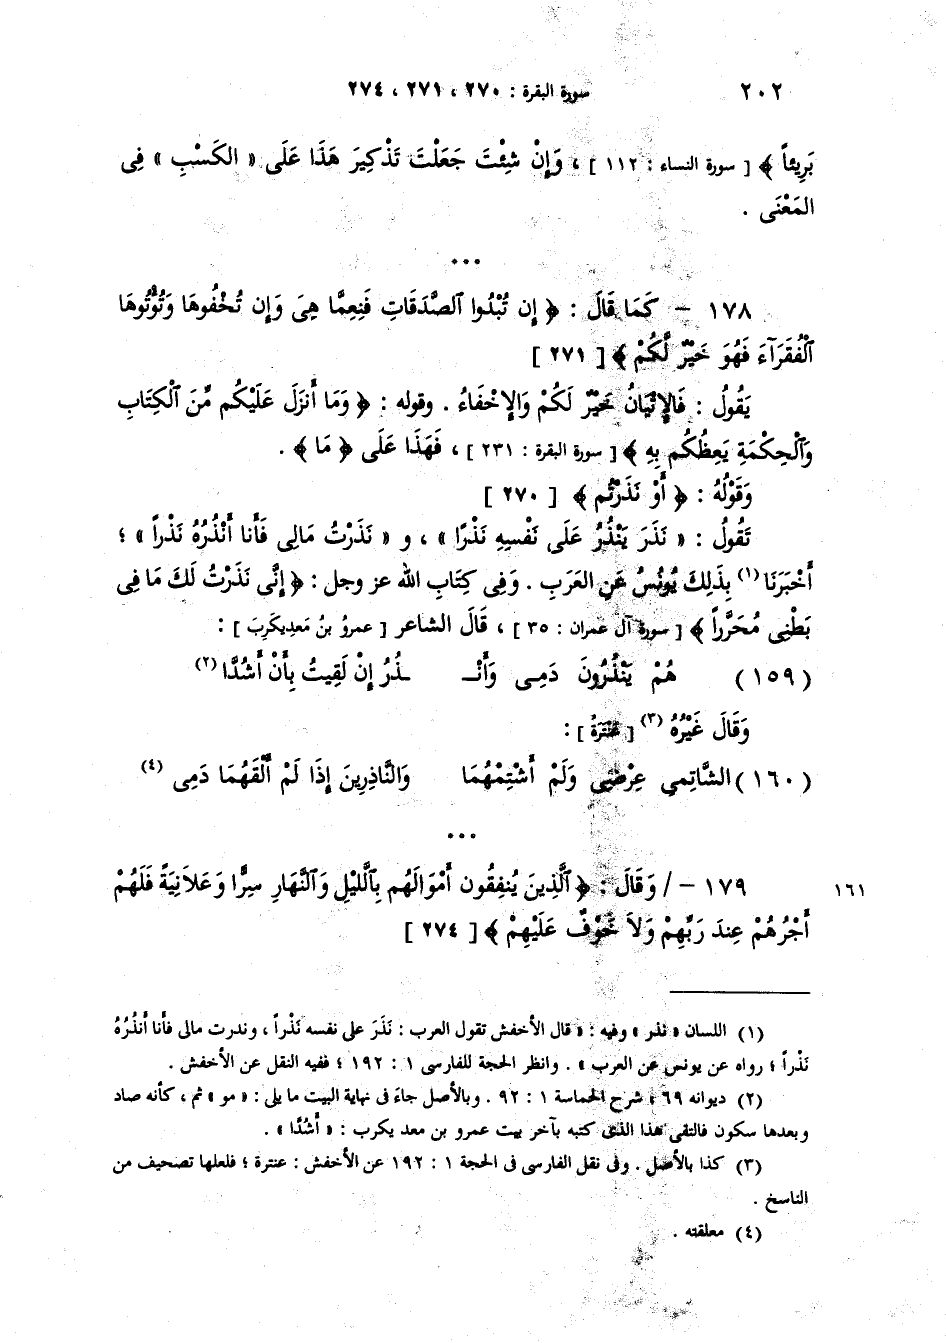 ٢٠٢ سورة البقرة : ٢٧٠ ، ٢٧١ ، ٢٧٤
بَرِيئاً ﴾ [ سورة النساء : ١١٢ ] ، وَإِنْ شِئْتَ جَعَلْتَ تَذْكِيرَ هَذَا عَلَى « الكَسْبِ » فِى
المَعْنَى .
•••
١٧٨ – كَمَا قَالَ : ﴿ إِن تُبْدُوا ٱلصَّدَقَاتِ فَنِعِمَّا هِىَ وَإِن تُخْفُوهَا وَتُؤْتُوهَا
ٱلْفُقَرَآءَ فَهُوَ خَيْرٌ لَّكُمْ ﴾ [ ٢٧١ ]
يَقُولُ : فَالإِتْيَانُ خَيْرٌ لَكُمْ وَالإِخْفَاءُ . وقوله : ﴿ وَمَا أَنزَلَ عَلَيْكُم مِّنَ ٱلْكِتَابِ
وَٱلْحِكْمَةِ يَعِظُكُم بِهِ ﴾ [ سورة البقرة : ٢٣١ ] ، فَهَذَا عَلَى ﴿ مَا ﴾ .
وَقَوْلُهُ : ﴿ أَوْ نَذَرْتُم ﴾ [ ٢٧٠ ]
تَقُولُ : « نَذَرَ يَنْذُرُ عَلَى نَفْسِهِ نَذْرًا » ، و « نَذَرْتُ مَالِى فَأَنا أَنْذُرُهُ نَذْراً » ؛
أَخْبَرَنَا (١) بِذَلِكَ يُونُسُ عَنِ العَرَبِ . وَفِى كِتَابِ اللهِ عز وجل : ﴿ إِنَّى نَذَرْتُ لَكَ مَا فِى
بَطْنِى مُحَرَّراً ﴾ [ سورة آل عمران : ٣٥ ] ، قَالَ الشاعر [ عمروُ بنُ مَعدِيكَرِبَ ] :
(١٥٩) هُمْ يَنْذُرُونَ دَمِى وَأَنْـ ـذُرُ إِنْ لَقِيتُ بِأَنْ أَشُدَّا (٢)
وَقَالَ غَيْرُهُ (٣) [ عَنْتَرَةُ ] :
(١٦٠) الشَّاتِمِى عِرْضِى وَلَمْ أَشْتِمْهُمَا وَالنَّاذِرِينَ إِذَا لَمْ أَلْقَهُمَا دَمِى (٤)
•••
١٧٩ – / وَقَالَ : ﴿ ٱلَّذِينَ يُنفِقُون أَمْوَالَهُم بِٱلَّليْلِ وَٱلنَّهَارِ سِرًّا وَعَلاَنِيَةً فَلَهُمْ ١٦١
أَجْرُهُمْ عِندَ رَبِّهِمْ وَلاَ خَوْفٌ عَلَيْهِمْ ﴾ [ ٢٧٤ ]
(١) اللسان « نذر » وفيه : « قال الأخفش تقول العرب : نَذَرَ على نفسه نَذْراً ، وندرت مالى فأنا أَنذُرُهُ
نَذْراً ؛ رواه عن يونس عن العرب » . وانظر الحجة للفارسى ١ : ١٩٢ ؛ ففيه النقل عن الأخفش .
(٢) ديوانه ٦٩ ، شرح الحماسة ١ : ٩٢ . وبالأصل جاءَ فى نهاية البيت ما يلى : « مو » ثم ، كأنه صاد
وبعدها سكون فالتقى هذا الذى كتبه بآخر بيت عمرو بن معد يكرب : « أَشُدَّا » .
(٣) كذا بالأصل . وفى نقل الفارسى فى الحجة ١ : ١٩٢ عن الأخفش : عنترة ؛ فلعلها تصحيف من
الناسخ .
(٤) معلقته .